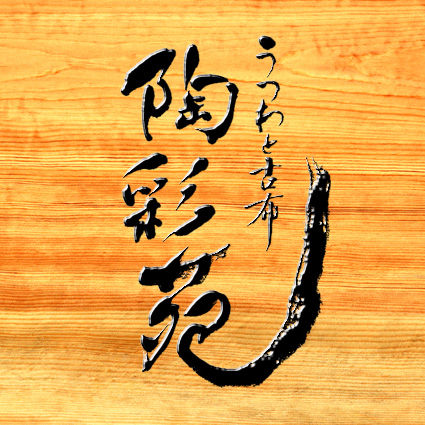 うつわと古布
陶彩苑